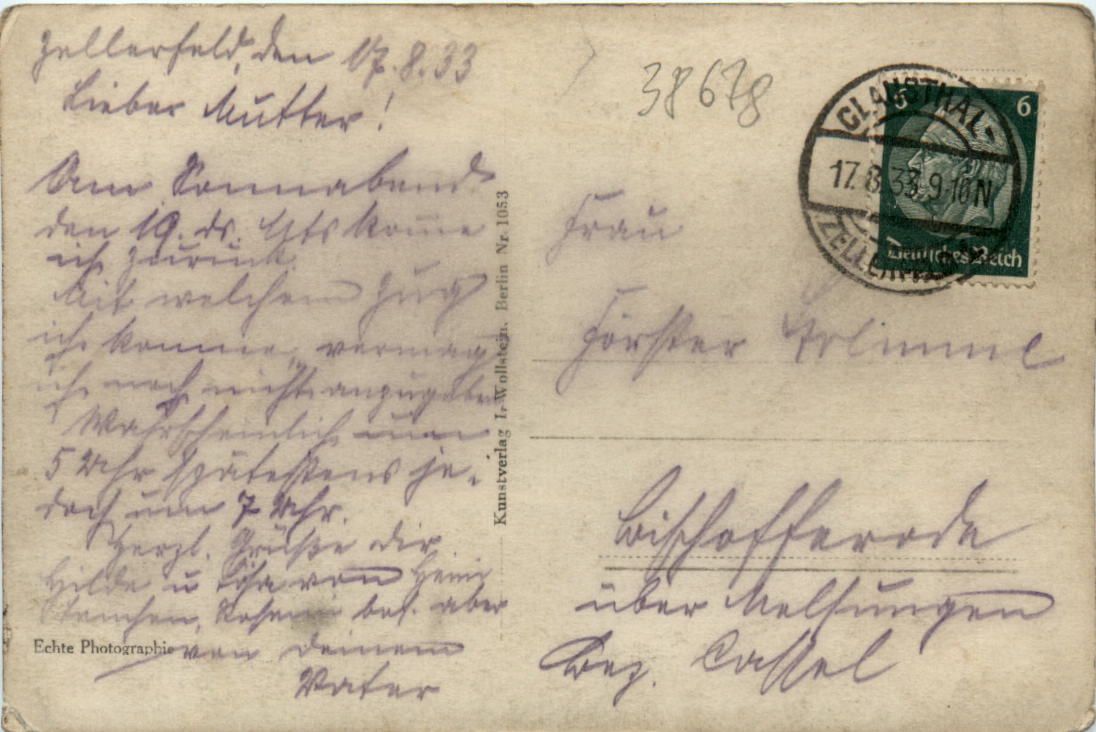 Zellerfeld, den 17.8.33
Liebe Mutter!
Am Sonnabend
den 19. ds. Mts komme
ich zurück.
Mit welchem Zug
ich komme, vermag
ich noch nicht anzugeben
Wahrscheinlich um
5 Uhr spätestens je-
doch um 7 Uhr.
Herzl. Grüße dir
Hilde u von Heini
bes. aber
von deinem
Vater
Echte Photographie
Kunstverlag L. Wollstein, Berlin Nr. 1053
38678
CLAUSTHAL-
17.8.33.9-10N
ZELLERFELD
6 6
Deutsches Reich
Frau
Förster
Bischofferode
über Melsungen
Bez. Cassel